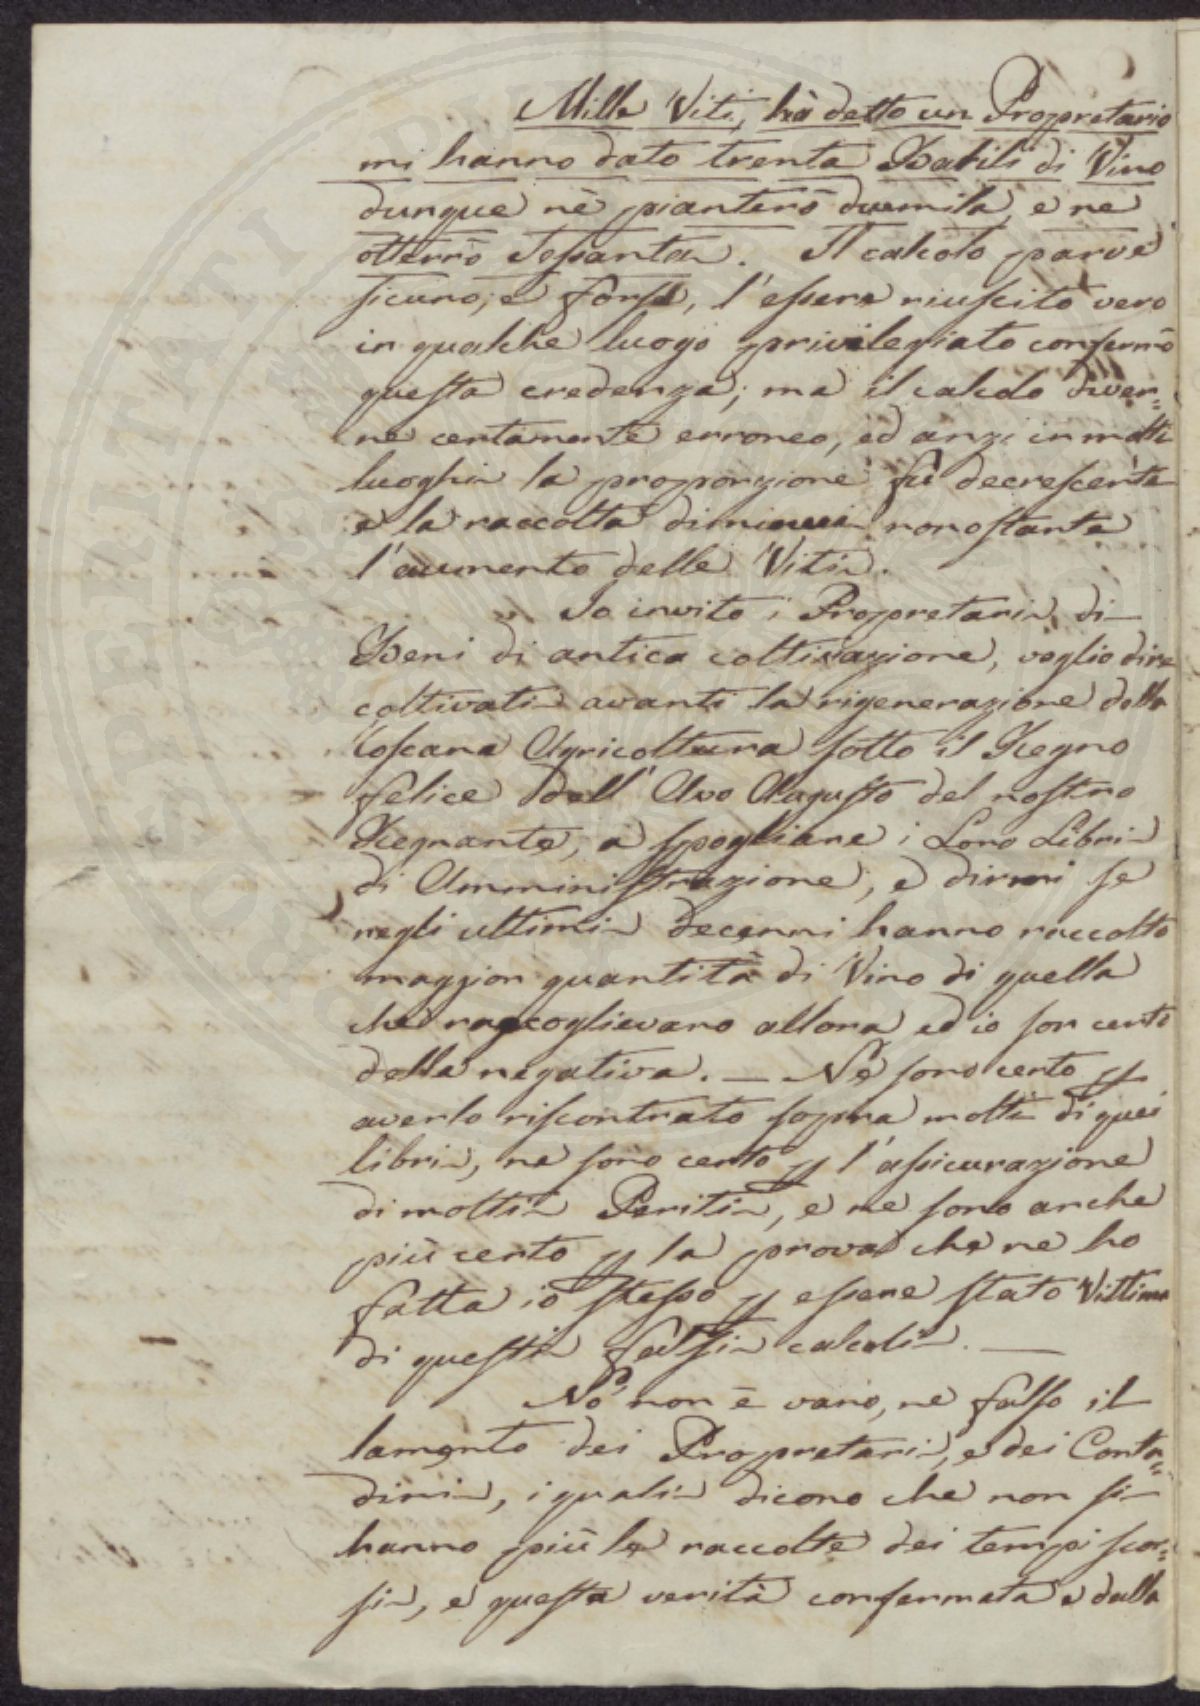 Mille Viti, hà detto un Propretario
mi hanno dato trenta Barili di Vino
dunque nè pianterò duemila, e ne
otterrò Sessanta. Il calcolo parve
sicuro; e forse, l'essere riuscito vero
in qualche luogo privilegiato confermò
questa credenza; ma il calcolo diven=
ne certamente erroneo, ed anzi in molti
luoghi la proporzione fù decrescente
e la raccolta diminuì nonostante
l'aumento delle Viti.
Io invito i Propretari di
Beni di antica coltivazione, voglio dire
coltivati avanti la rigenerazione della
Toscana Agricoltura sotto il Regno
felice dell' Avo Augusto del nostro
Regnante, a spogliare i Loro Libri
di Amministrazione, e dirmi se
negli ultimi decenni hanno raccolto
maggior quantità di Vino di quella
che raccoglievano allora ed io son certo
della negativa. — Nè sono certo p
averlo riscontrato sopra molti di quei
libri, ne sono certo p l'assicurazione
di molti Periti, e ne sono anche
più certo p la prova che ne ho
fatta io stesso p essere stato Vittima
di questi falsi calcoli. —
Nò non è vano, ne falso il
lamento dei Propretari, e dei Conta=
dini, i quali dicono che non si
hanno più le raccolte dei tempi scor=
si, e questa verità confermata e dalla
PROSPERITATI PU